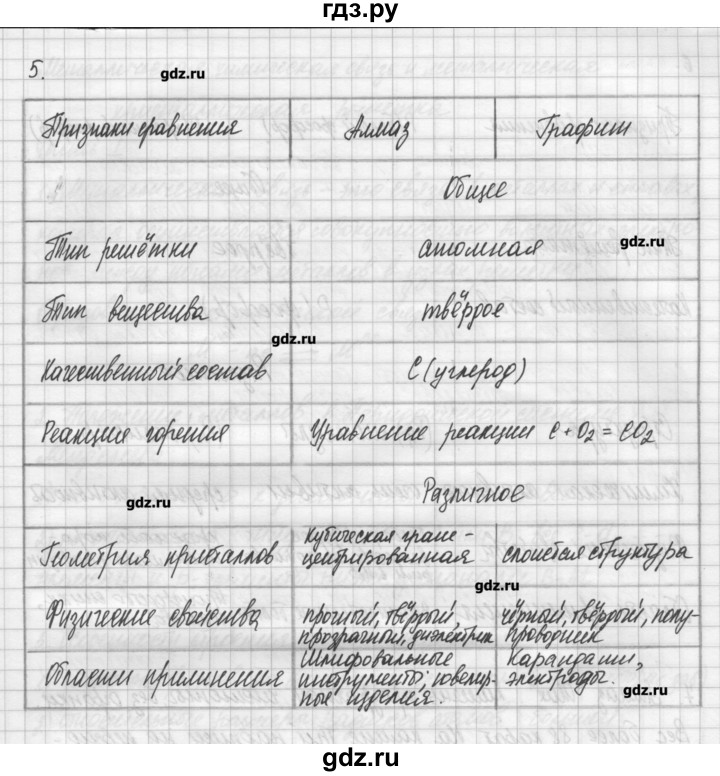 гдз.ру
5.
gdz.ru
Признаки сравнения Алмаз Графит
Общее
Тип решётки атомная gdz.ru
Тип вещества твёрдое
gdz.ru
Качественный состав C (углерод)
Реакция горения Уравнение реакции C + O₂ = CO₂
gdz.ru Различное
Геометрия кристаллов Кубическая гране-
центрированная слоистая структура
gdz.ru
Физические свойства прочный, твёрдый,
прозрачный, диэлектрик чёрный, твёрдый, полу-
проводник
Области применения Шлифовальные
инструменты; ювелир-
ные изделия. Карандаши,
электроды.
gdz.ru
gdz.ru